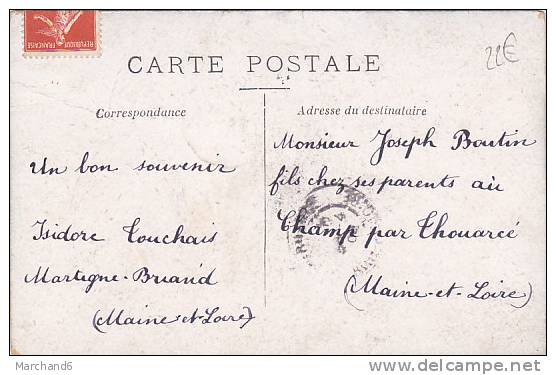 REPUBLIQUE FRANCAISE
22€
CARTE POSTALE
Correspondance
Adresse du destinataire
Un bon souvenir
Isidore Touchais
Martigne-Briand
(Maine-et-Loire)
Monsieur Joseph Boutin
fils chez ses parents au
Champ par Thouarcé
(Maine-et-Loire)
Marchand6
delcampe.net